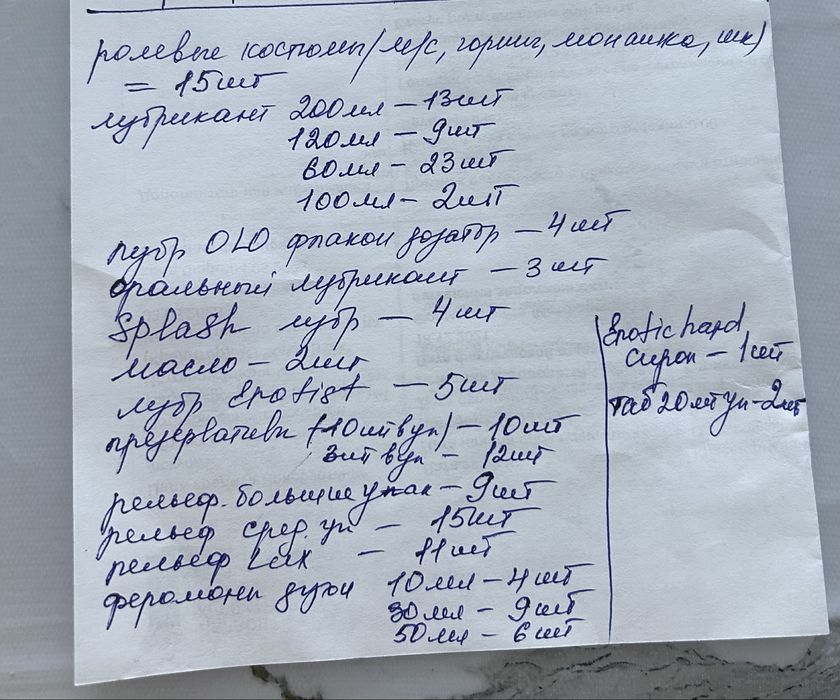 ролевые костюмы (м/с, горнич, монашка, шк)
= 15шт
лубрикант 200мл – 13шт
120мл – 9шт
60мл – 23шт
100мл – 2шт
лубр OLO флакон дозатор – 4шт
оральный лубрикант – 3шт
Splash лубр – 4шт
масло – 2шт
лубр Erotist – 5шт
презервативы (10шт в уп) – 10шт
3шт в уп – 12шт
рельеф. большие упак – 9шт
рельеф сред. уп – 15шт
рельеф Lux – 11шт
феромоны духи 10мл – 4шт
30мл – 9шт
50мл – 6шт
Erotic hard
сироп – 1шт
таб 20шт уп – 2шт